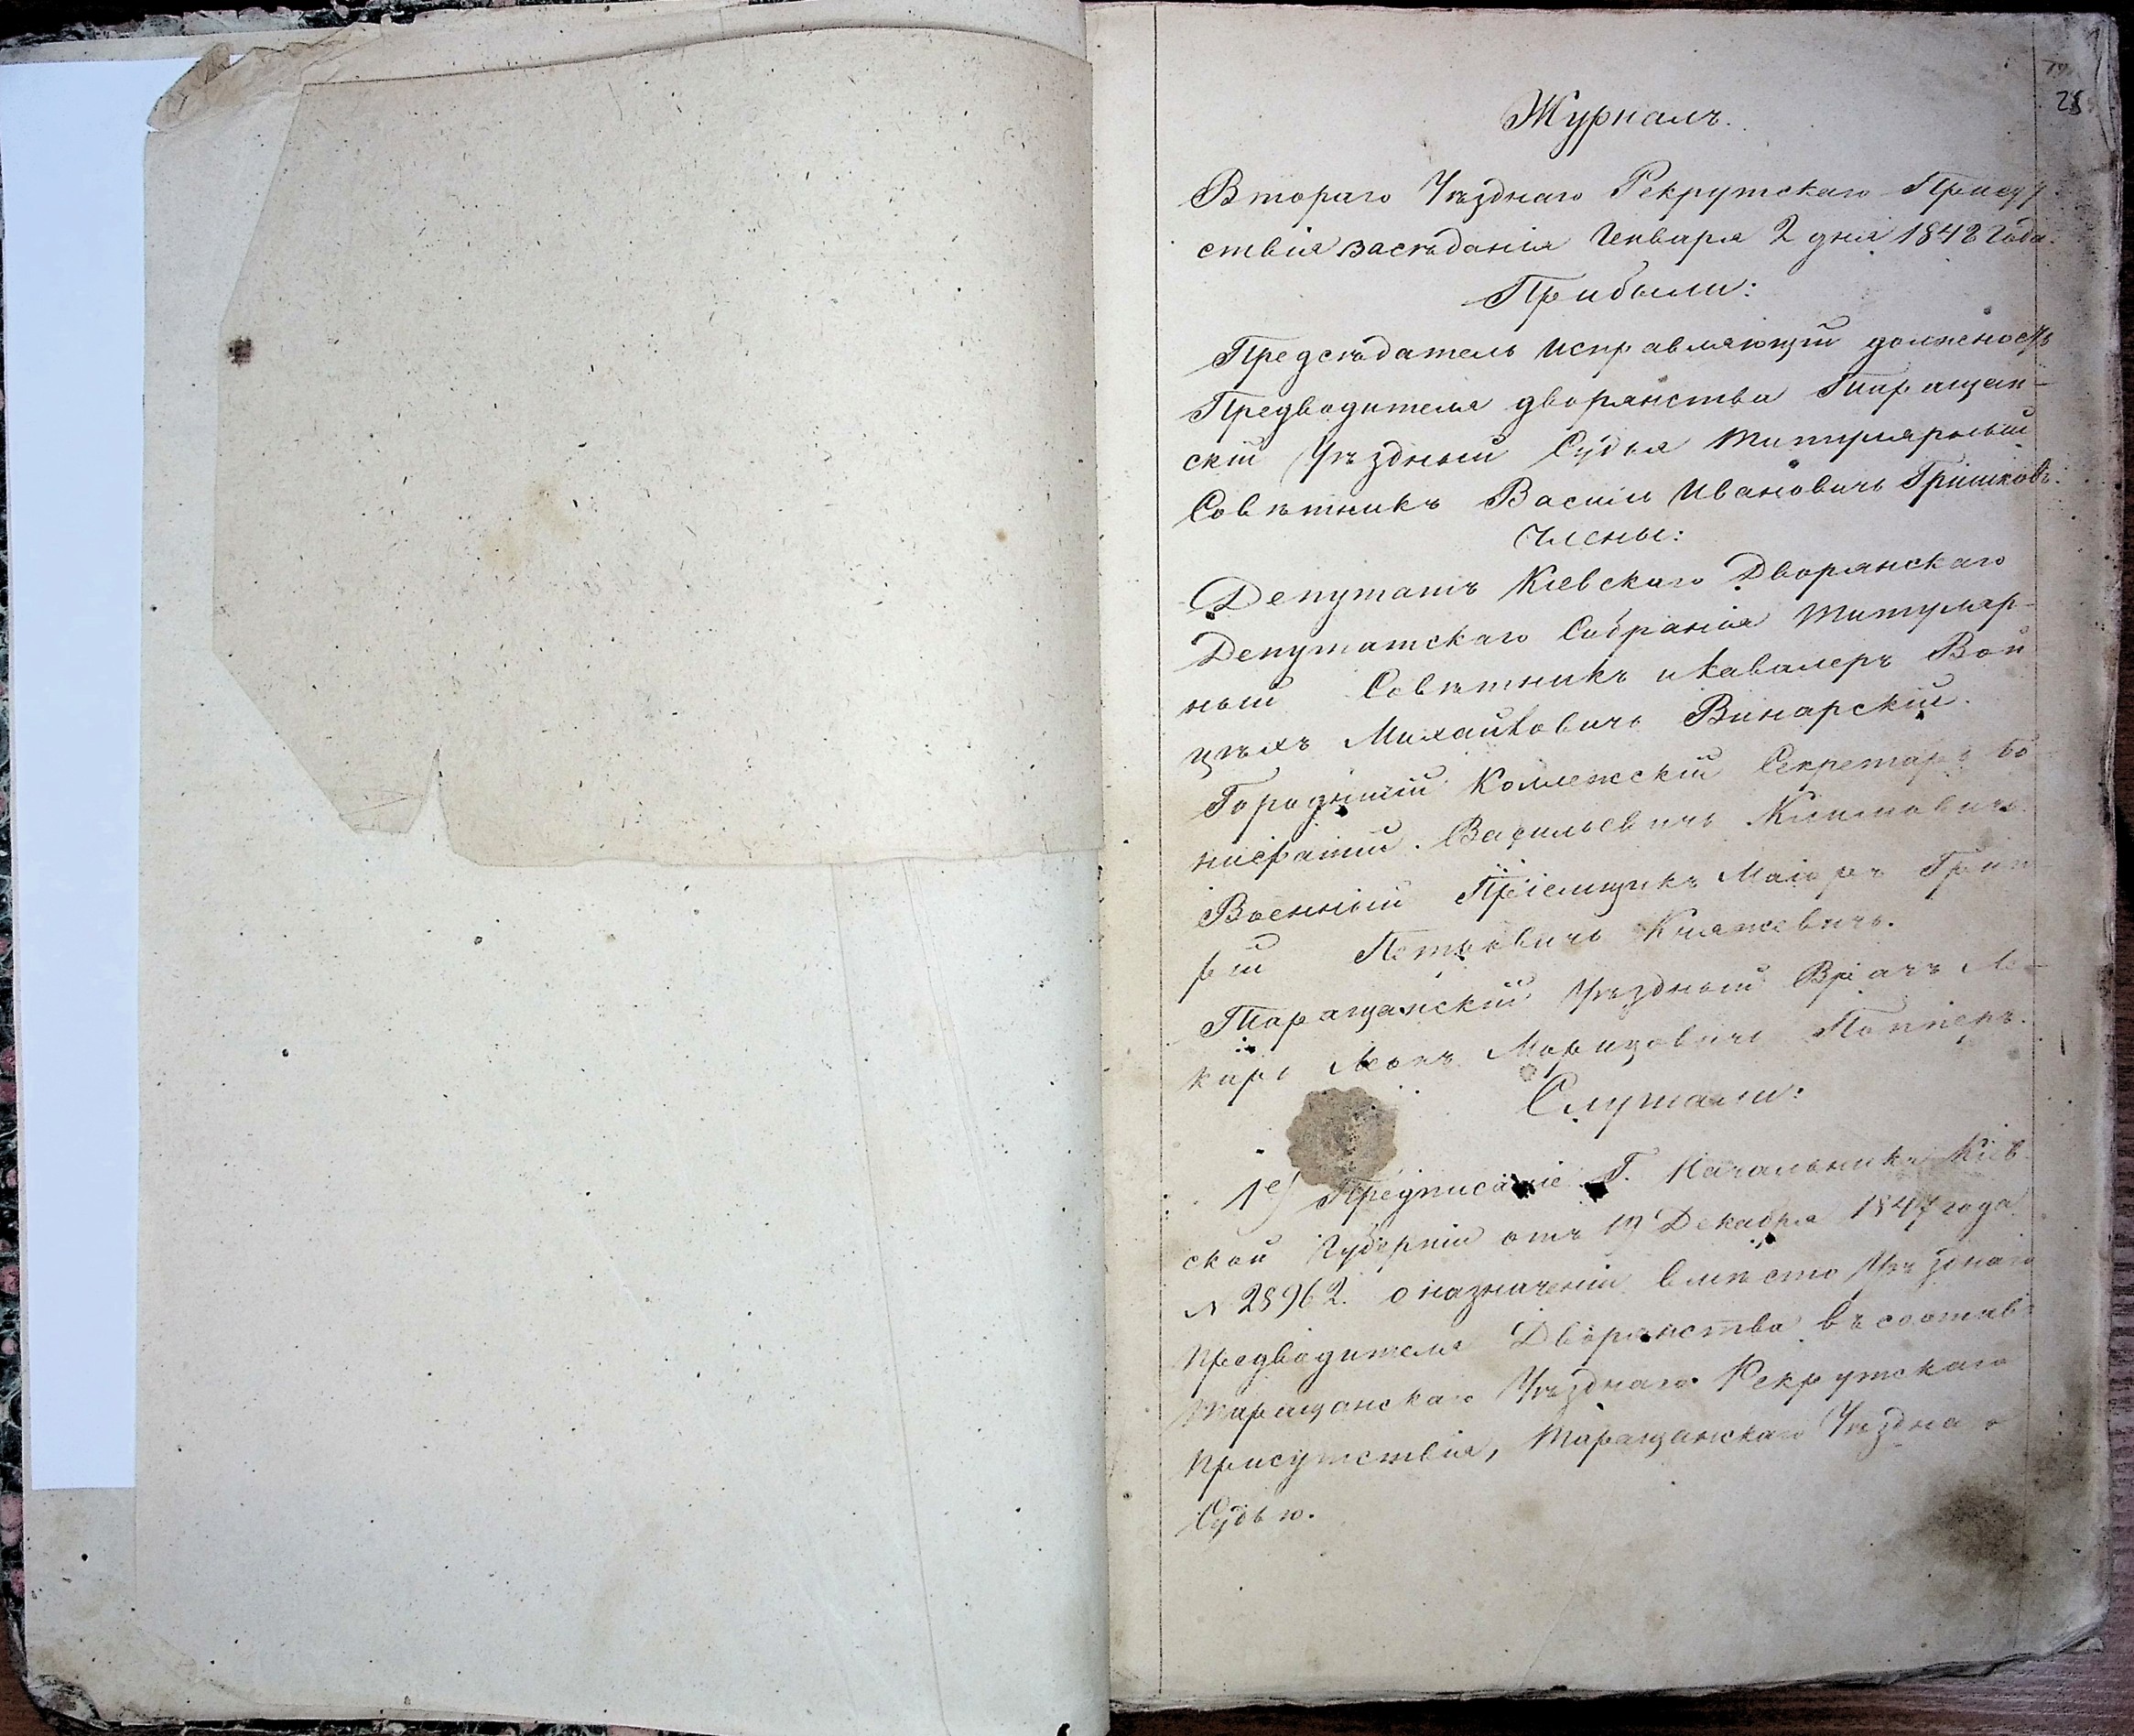 28
Журналъ.
Втораго Уѣзднаго Рекрутскаго Присут
ствія засѣданія Генваря 2 дня 1848 Года.
Прибыли:
Предсѣдатель исправляющій должность
Предводителя дворянства Таращан-
скій Уѣздный Судья Титулярный
Совѣтникъ Василь Ивановичь Гришковъ.
Члены:
Депутатъ Кіевскаго Дворянскаго
Депутатскаго Собранія Титуляр-
ный Совѣтникъ и кавалеръ Вой
цѣхъ Михайловичь Винарскій.
Городничій Коллежскій Секретарь Бо
нифатій Васильевичь
Военный Пріемщикъ Маіоръ Григо
рій Петровичь Княжевичь.
Таращанскій Уѣздный Врачъ Ле-
карь Леонъ Морицовичь Попперъ.
Слушали:
1е) Предписаніе Г. Начальника Кіев
ской Губерніи отъ 19 Декабря 1847 года
№ 28962. о назначеніи вмѣсто Уѣзднаго
предводителя Дворянства въ составъ
Таращанскаго Уѣзднаго Рекрутскаго
присутствія, Таращанскаго Уѣздна о
Судью.